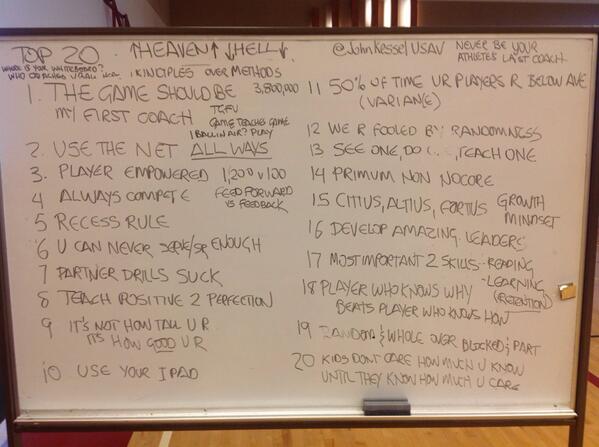 TOP 20 ↑HEAVEN↑ ↓HELL↓
WHERE IS YOUR WHITEBOARD?
WHO COACHED U
PRINCIPLES OVER METHODS
1. THE GAME SHOULD BE 3,800,000
MY FIRST COACH
TGFU
GAME TEACHES GAME
1 BALL IN AIR? PLAY
2. USE THE NET ALL WAYS
3. PLAYER EMPOWERED 1,200 v 100
4 ALWAYS COMPETE
FEED FORWARD
VS FEEDBACK
5 RECESS RULE
6 U CAN NEVER SERVE/SR ENOUGH
7 PARTNER DRILLS SUCK
8 TEACH POSITIVE 2 PERFECTION
9 IT'S NOT HOW TALL U R
IT'S HOW GOOD U R
10 USE YOUR IPAD
@JohnKessel USAV NEVER BE YOUR
ATHLETES LAST COACH
11 50% OF TIME UR PLAYERS R BELOW AVE
(VARIANCE)
12 WE R FOOLED BY RANDOMNESS
13 SEE ONE, DO ONE, TEACH ONE
14 PRIMUM NON NOCORE
15 CITIUS, ALTIUS, FORTUS GROWTH
MINDSET
16 DEVELOP AMAZING LEADERS
17 MOST IMPORTANT 2 SKILLS - READING
- LEARNING
(RETENTION)
18 PLAYER WHO KNOWS WHY
BEATS PLAYER WHO KNOWS HOW
19 RANDOM & WHOLE OVER BLOCKED & PART
20 KIDS DONT CARE HOW MUCH U KNOW
UNTIL THEY KNOW HOW MUCH U CARE